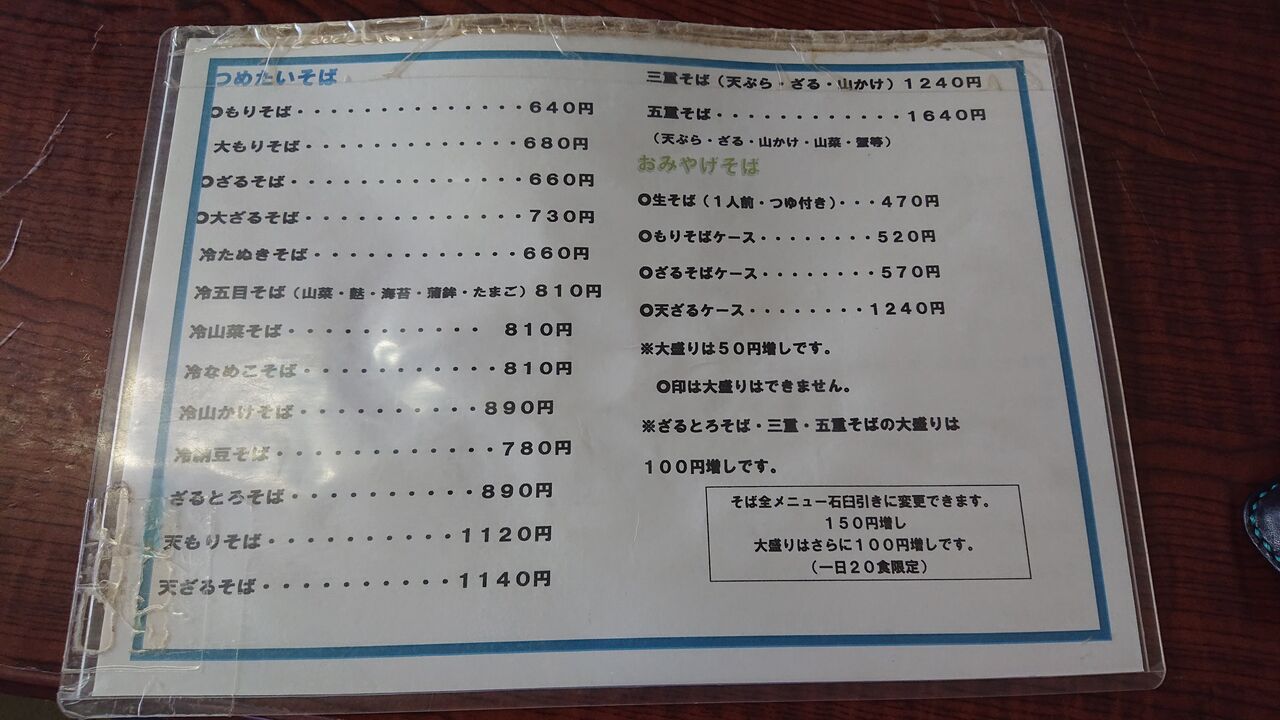 つめたいそば
○もりそば・・・・・・・・・・・・・・６４０円
大もりそば・・・・・・・・・・・・・６８０円
○ざるそば・・・・・・・・・・・・・・６６０円
○大ざるそば・・・・・・・・・・・・・７３０円
冷たぬきそば・・・・・・・・・・・・６６０円
冷五目そば（山菜・麩・海苔・蒲鉾・たまご）８１０円
冷山菜そば・・・・・・・・・・・　８１０円
冷なめこそば・・・・・・・・・・・８１０円
冷山かけそば・・・・・・・・・・８９０円
冷納豆そば・・・・・・・・・・・・７８０円
ざるとろそば・・・・・・・・・・８９０円
天もりそば・・・・・・・・・・１１２０円
天ざるそば・・・・・・・・・・１１４０円
三重そば（天ぷら・ざる・山かけ）１２４０円
五重そば・・・・・・・・・・・・１６４０円
（天ぷら・ざる・山かけ・山菜・蟹等）
おみやげそば
○生そば（１人前・つゆ付き）・・・４７０円
○もりそばケース・・・・・・・・５２０円
○ざるそばケース・・・・・・・・５７０円
○天ざるケース・・・・・・・・１２４０円
※大盛りは５０円増しです。
○印は大盛りはできません。
※ざるとろそば・三重・五重そばの大盛りは
１００円増しです。
そば全メニュー石臼引きに変更できます。
１５０円増し
大盛りはさらに１００円増しです。
（一日２０食限定）